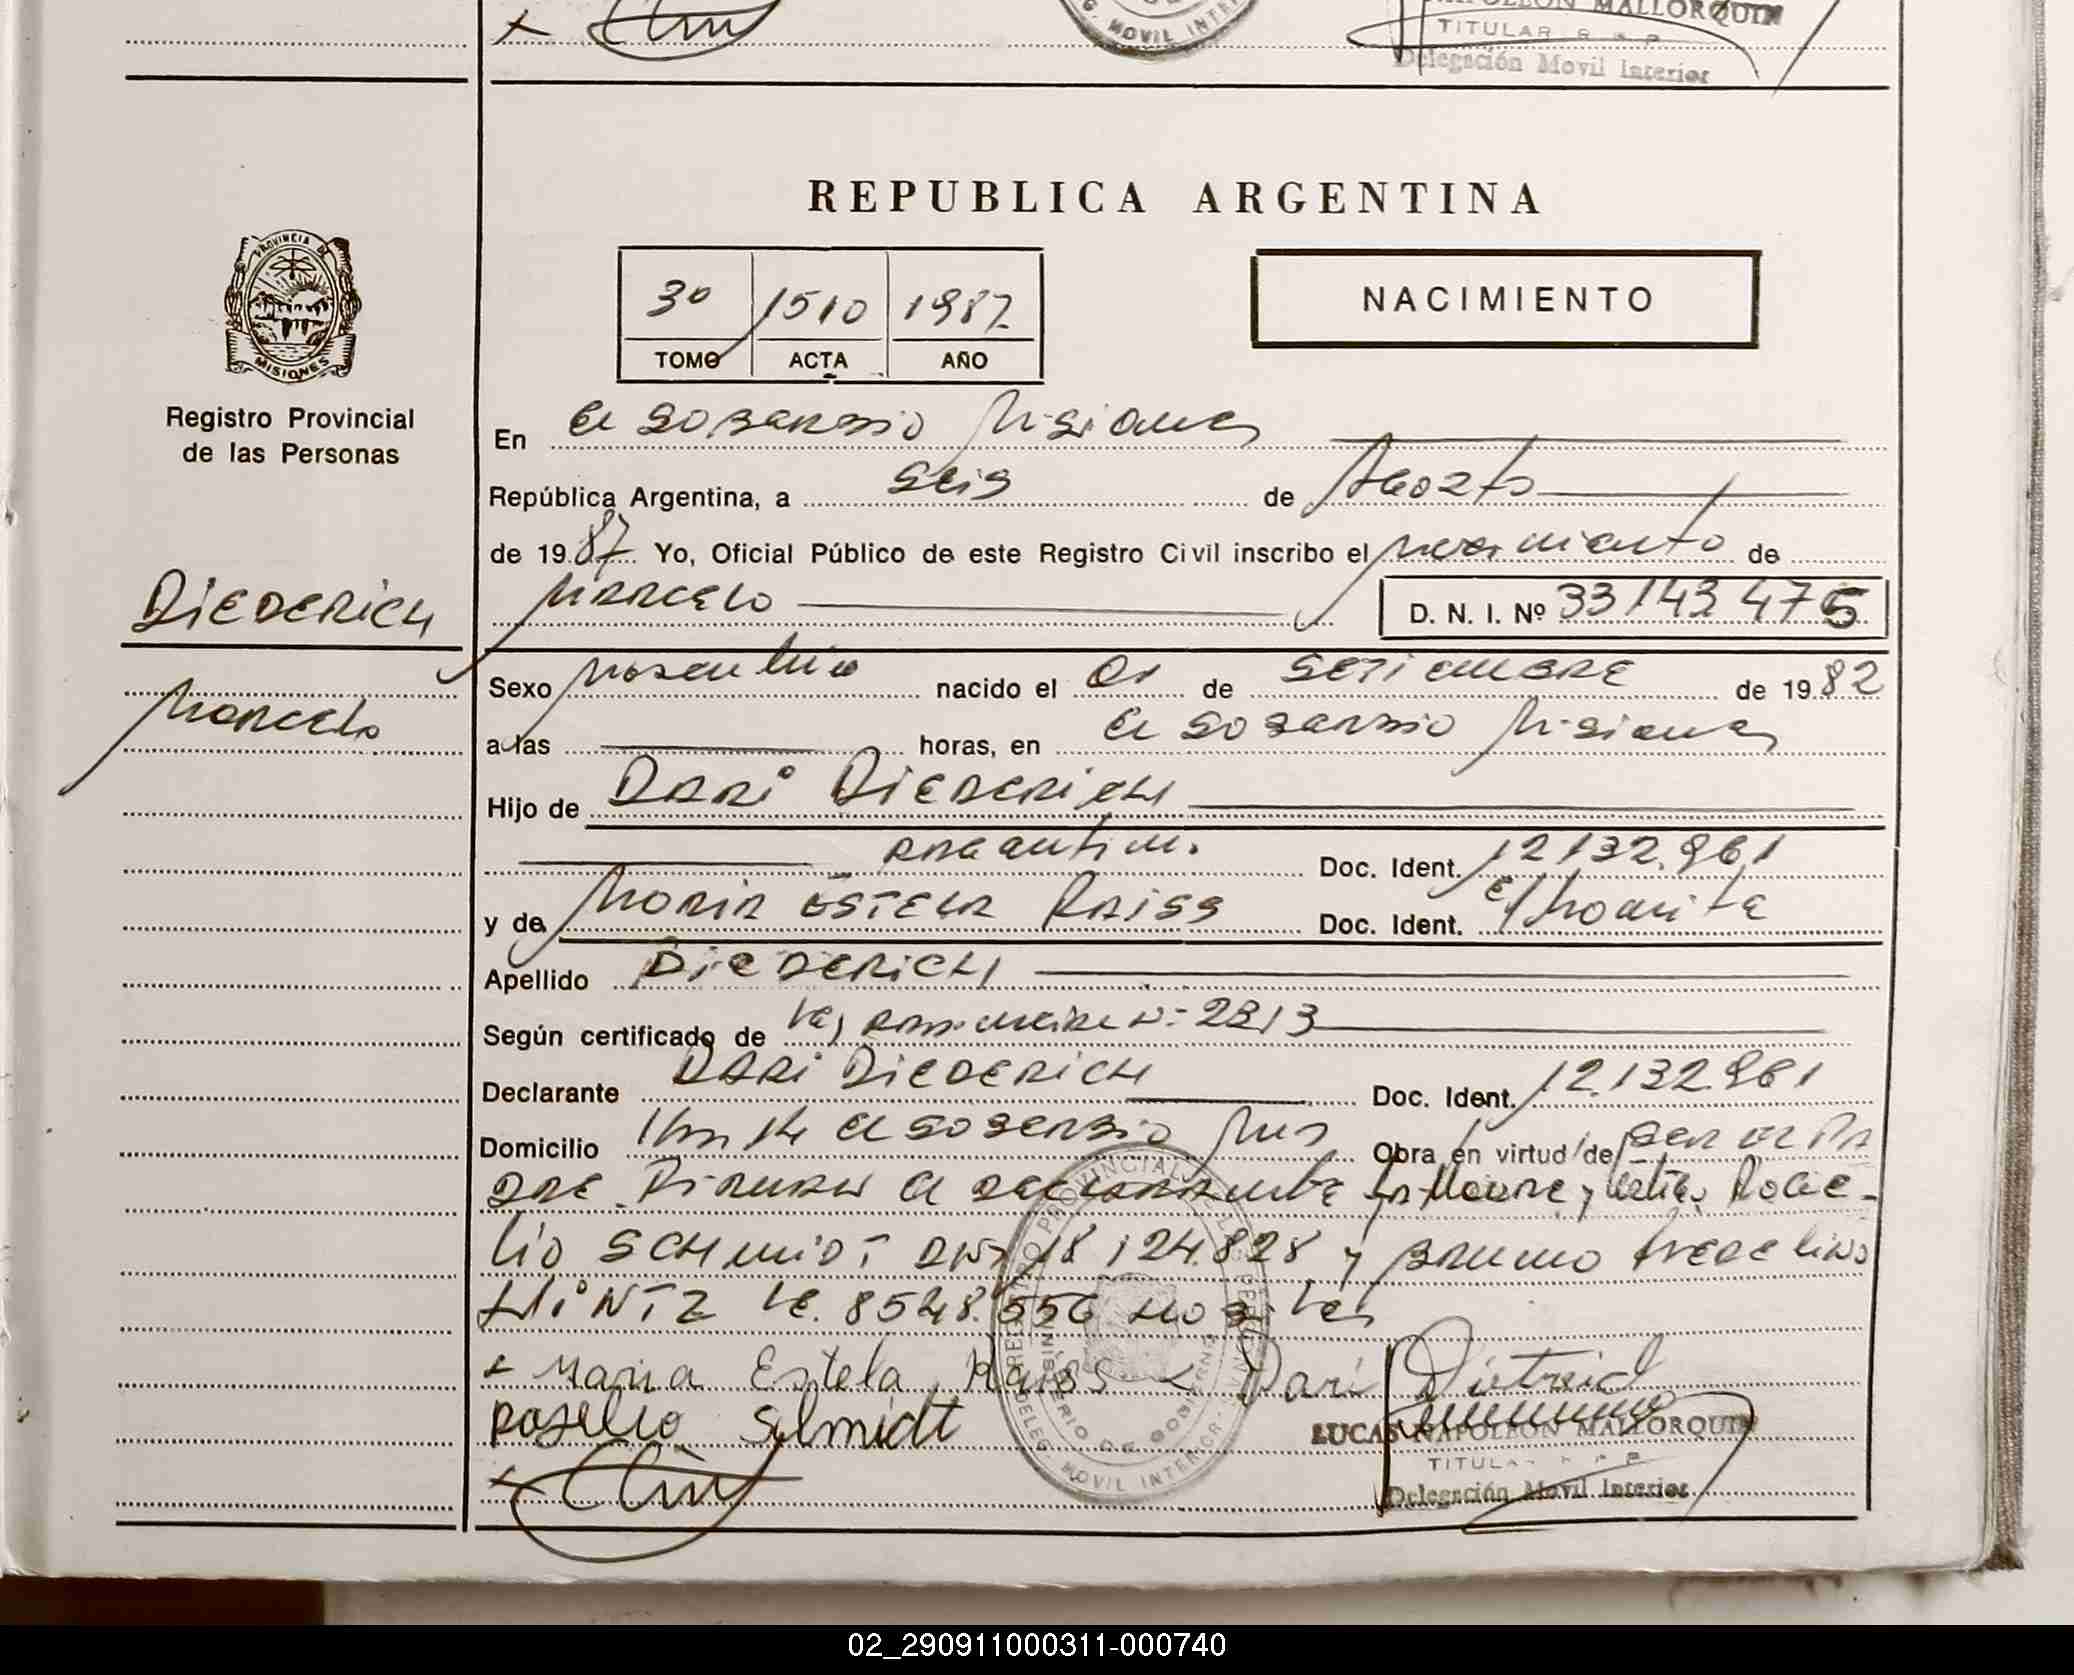 NAPOLEON MALLORQUIN
G. MOVIL INTER
TITULAR R P
Delegación Movil Interior
REPUBLICA ARGENTINA
PROVINCIA DE
MISIONES
3º 1510 1987
TOMO ACTA AÑO
NACIMIENTO
Registro Provincial
de las Personas
En El Soberbio Misiones
República Argentina, a seis de Agosto
de 1987 Yo, Oficial Público de este Registro Civil inscribo el nacimiento de
Marcelo D. N. I. Nº 33143475
DIEDERICH
Marcelo
Sexo masculino nacido el 01 de SETIEMBRE de 1982
a las horas, en El Soberbio Misiones
Hijo de DARI DIEDERICH
argentino Doc. Ident. 12132.961
y de Maria ESTELA RAISS Doc. Ident.
Apellido DIEDERICH
Según certificado de Ley Nº 2813
Declarante DARI DIEDERICH Doc. Ident. 12.132961
Domicilio El Soberbio Mis Obra en virtud de ser el PA
DRE Firman el declarante la Madre y testigos Roge-
lio SCHMIDT DNI 18.124.828 y BRUNO
HINTZ LE. 8548.556
REGISTRO PROVINCIAL DE LAS PERSONAS
MINISTERIO DE GOBIERNO
DELEG. MOVIL INTERIOR
x Maria Estela Raiss x Dari Dietrich
Rogelio Schmidt
LUCAS NAPOLEON MALLORQUIN
TITULAR R P
Delegación Movil Interior
02_290911000311-000740